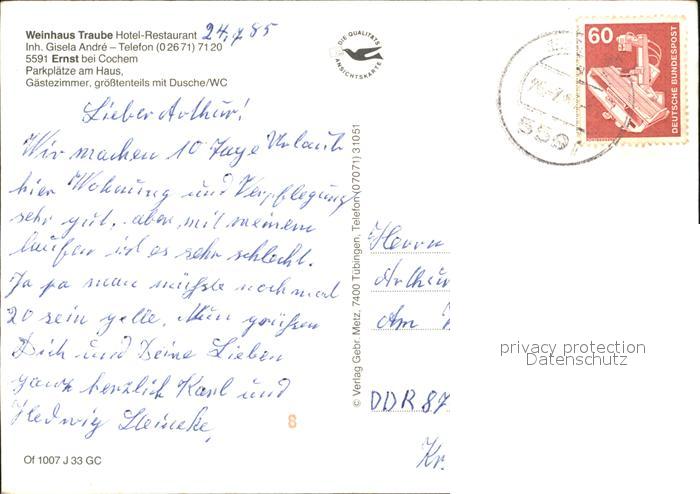 Weinhaus Traube Hotel-Restaurant 24.7.85
Inh. Gisela André – Telefon (0 26 71) 71 20
5591 Ernst bei Cochem
Parkplätze am Haus,
Gästezimmer, größtenteils mit Dusche/WC
DIE QUALITÄTS
ANSICHTSKARTE
60
DEUTSCHE BUNDESPOST
559
Lieber Arthur!
Wir machen 10 Tage Urlaub
hier Wohnung und Verpflegung
sehr gut, aber mit meinem
laufen ist es sehr schlecht.
Ja ja man müsste noch mal
20 sein gelle. Nun grüßen
Dich und Deine Lieben
ganz herzlich Karl und
Hedwig Steineke,
© Verlag Gebr. Metz, 7400 Tübingen, Telefon (07071) 31051
Herrn
Arthur
Am
DDR 87
Kr.
privacy protection
Datenschutz
8
Of 1007 J 33 GC